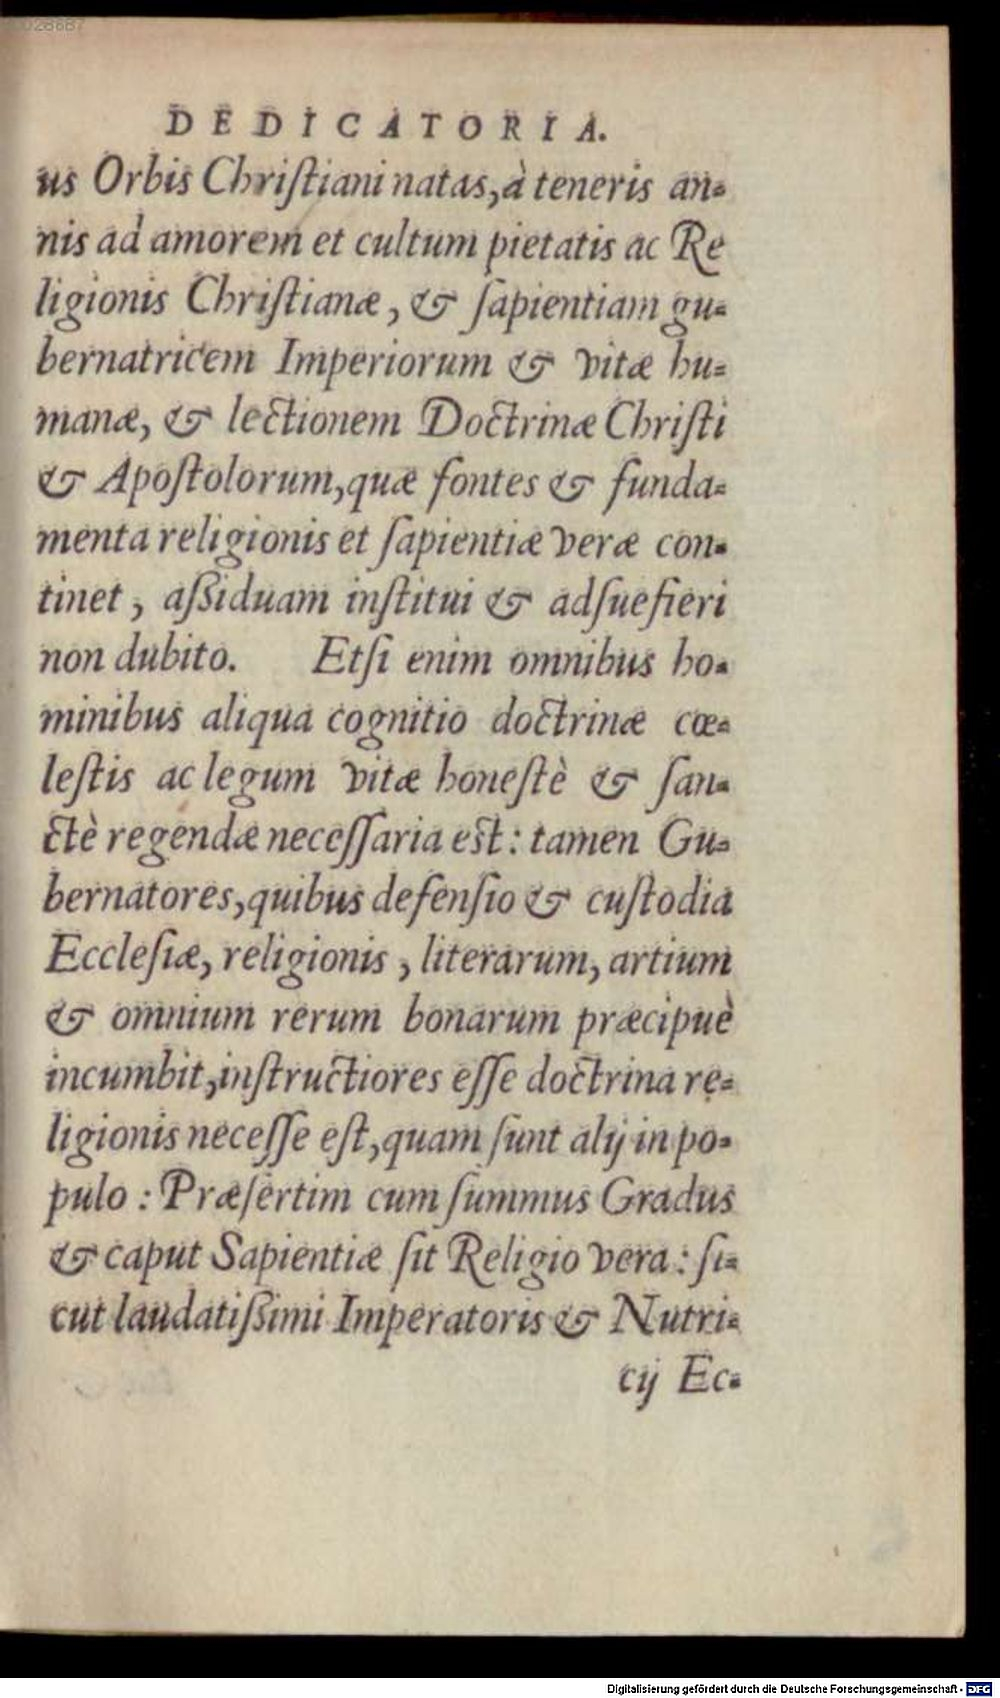 00028687
DEDICATORIA.
us Orbis Chriſtiani natas, à teneris an=
nis ad amorem et cultum pietatis ac Re
ligionis Chriſtianæ, & ſapientiam gu=
bernatricem Imperiorum & vitæ hu=
manæ, & lectionem Doctrinæ Chriſti
& Apoſtolorum, quæ fontes & funda=
menta religionis et ſapientiæ veræ con=
tinet, aſſiduam inſtitui & adſuefieri
non dubito. Etſi enim omnibus ho=
minibus aliqua cognitio doctrinæ cœ=
leſtis ac legum vitæ honeſtè & ſan=
ctè regendæ neceſſaria est: tamen Gu=
bernatores, quibus defenſio & cuſtodia
Eccleſiæ, religionis, literarum, artium
& omnium rerum bonarum præcipuè
incumbit, inſtructiores eſſe doctrina re=
ligionis neceſſe eſt, quam ſunt alij in po=
pulo: Præſertim cum ſummus Gradus
& caput Sapientiæ ſit Religio vera: ſi=
cut laudatiſſimi Imperatoris & Nutri=
cij Ec=
Digitalisierung gefördert durch die Deutsche Forschungsgemeinschaft - DFG